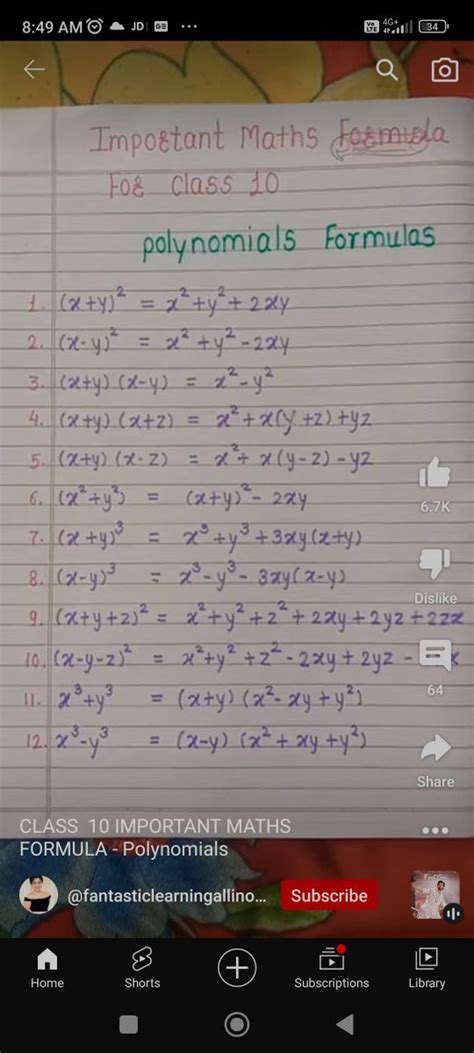 8:49 AM JD ... Vo LTE 4G+ 34
Important Maths Formula
For Class 10
polynomials Formulas
1. (x+y)² = x²+y²+2xy
2. (x-y)² = x²+y²-2xy
3. (x+y) (x-y) = x²-y²
4. (x+y) (x+z) = x²+x(y+z)+yz
5. (x+y) (x-z) = x²+x(y-z)-yz
6. (x²+y²) = (x+y)²-2xy
7. (x+y)³ = x³+y³+3xy(x+y)
8. (x-y)³ = x³-y³-3xy(x-y)
9. (x+y+z)² = x²+y²+z²+2xy+2yz+2zx
10. (x-y-z)² = x²+y²+z²-2xy+2yz-
11. x³+y³ = (x+y) (x²-xy+y²)
12. x³-y³ = (x-y) (x²+xy+y²)
6.7K
Dislike
64
Share
CLASS 10 IMPORTANT MATHS
FORMULA - Polynomials
@fantasticlearningallino... Subscribe
Home Shorts Subscriptions Library